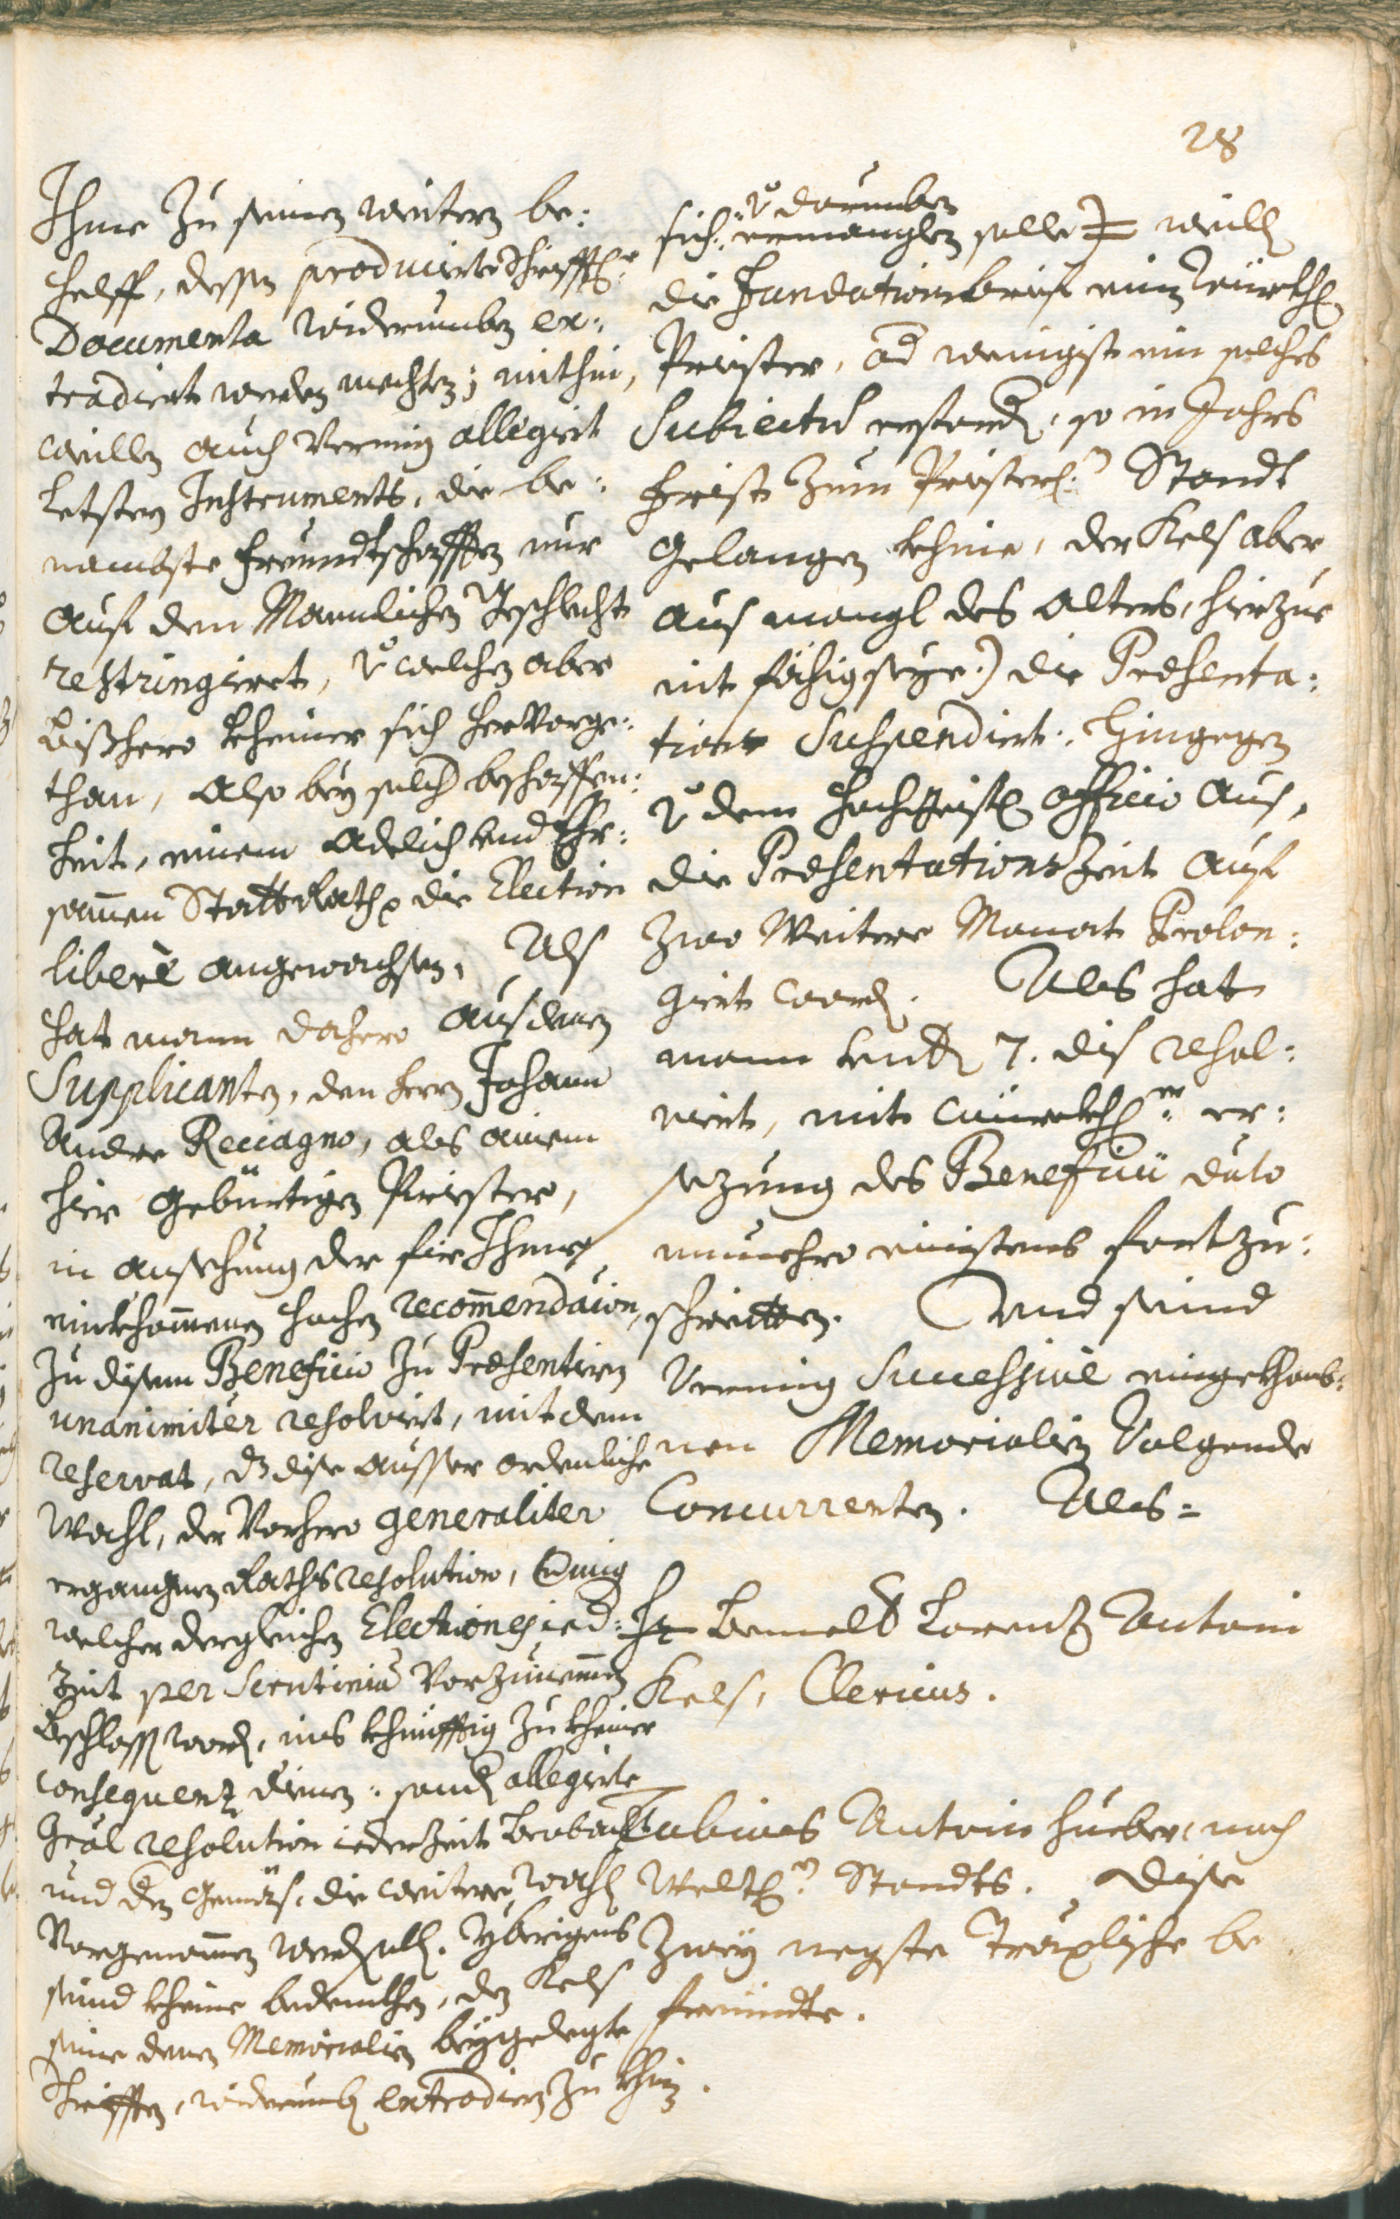 28
Ihme zu seinen weitern be:
helff, dessen producierte Schrifftl:e
Documenta widerumben ex:
tradiert werden mechten; mithin,
weillen auch vermig allegirt
letsten Instruments, die be:
nambste freundtschafften nur
auf den Mannlichen Geschlecht
restringiert, von welchen aber
bißhero kheiner sich hervorge:
than, also bey solch beschaffen:
heit, einem Adelich und Ehr:
samen Stattrath die Election
liberè angewachsen. Als
hat mann dahero aus denen
Supplicanten, den herrn Johann
Andre Recciagno, als ainem
hier gebürtigen Priester,
in ansehung der für Ihme
einkhommenen hochen recommendaion,
zu disem Beneficio zu Presentiren
unanimiter resolvirt, mit dem
reservat, dz dise ausser ordenliche
Wahl, der vorhero generaliter
ergangnen Raths resolution, vermig
welcher dergleichen Electiones ied:
zeit per Scrutinia vorzunemmen
beschlossen worden, ins khünfftig zu kheiner
consequenz dienen: sonder allegirte
Gräl resolution iederzeit beobacht
und dem gemäs, die weitere wahl
vorgenommen werden soll. Ybrigens
seind kheine bedenkhen, dem Kels
seine denen Memorialien beygelegte
Schrifften, widerumb extradiern zu khinen.
von darumben
sich: ermanglen solle) weill
die Fundationsbrief einen würkhl:
Priester, od wenigist ein solches
Subiectum erfordere, so in Jahrs
frist zum Priesterl:n Standt
gelangen khine, der Kels aber
aus mangl des alters, hierzue
nit fähig seye:) die Presenta:
tion Suspendirt: hingegen
von dem hochgeistl: officio aus,
die Presentations zeit auf
zwo weitere Monat Prolon:
girt worden. Als hat
mann undter 7. dis resol:
virt, mit würkhl:er er:
sezung des Beneficii dato
nunmehro einistens fortzu:
schreitten. Und seind
vermig Successivè eingekhomb:
nen Memorialien volgende
Concurrenten. Als=
Hr bemelt Lorenz Antoni
Kels, Clericus.
Tobias Antoni Hueber, noch
Weltl:n Standts. dise
zwey negste Träxlische be
freundte.